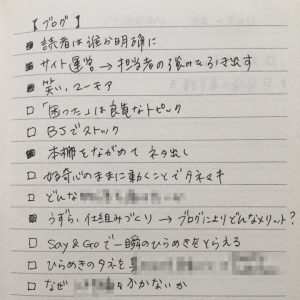 【ブログ】
読者は誰か明確に
サイト運営→担当者の強みを引き出す
笑い、ユーモア
「困った」は良質なトピック
BJでストック
本棚をながめてネタ出し
好奇心のままに動くことでタネマキ
どんな
うずらい仕組みづくり→ブログによりどんなメリット?
Say&Goで一瞬のひらめきをとらえる
ひらめきのタネを
なぜ をかかないか